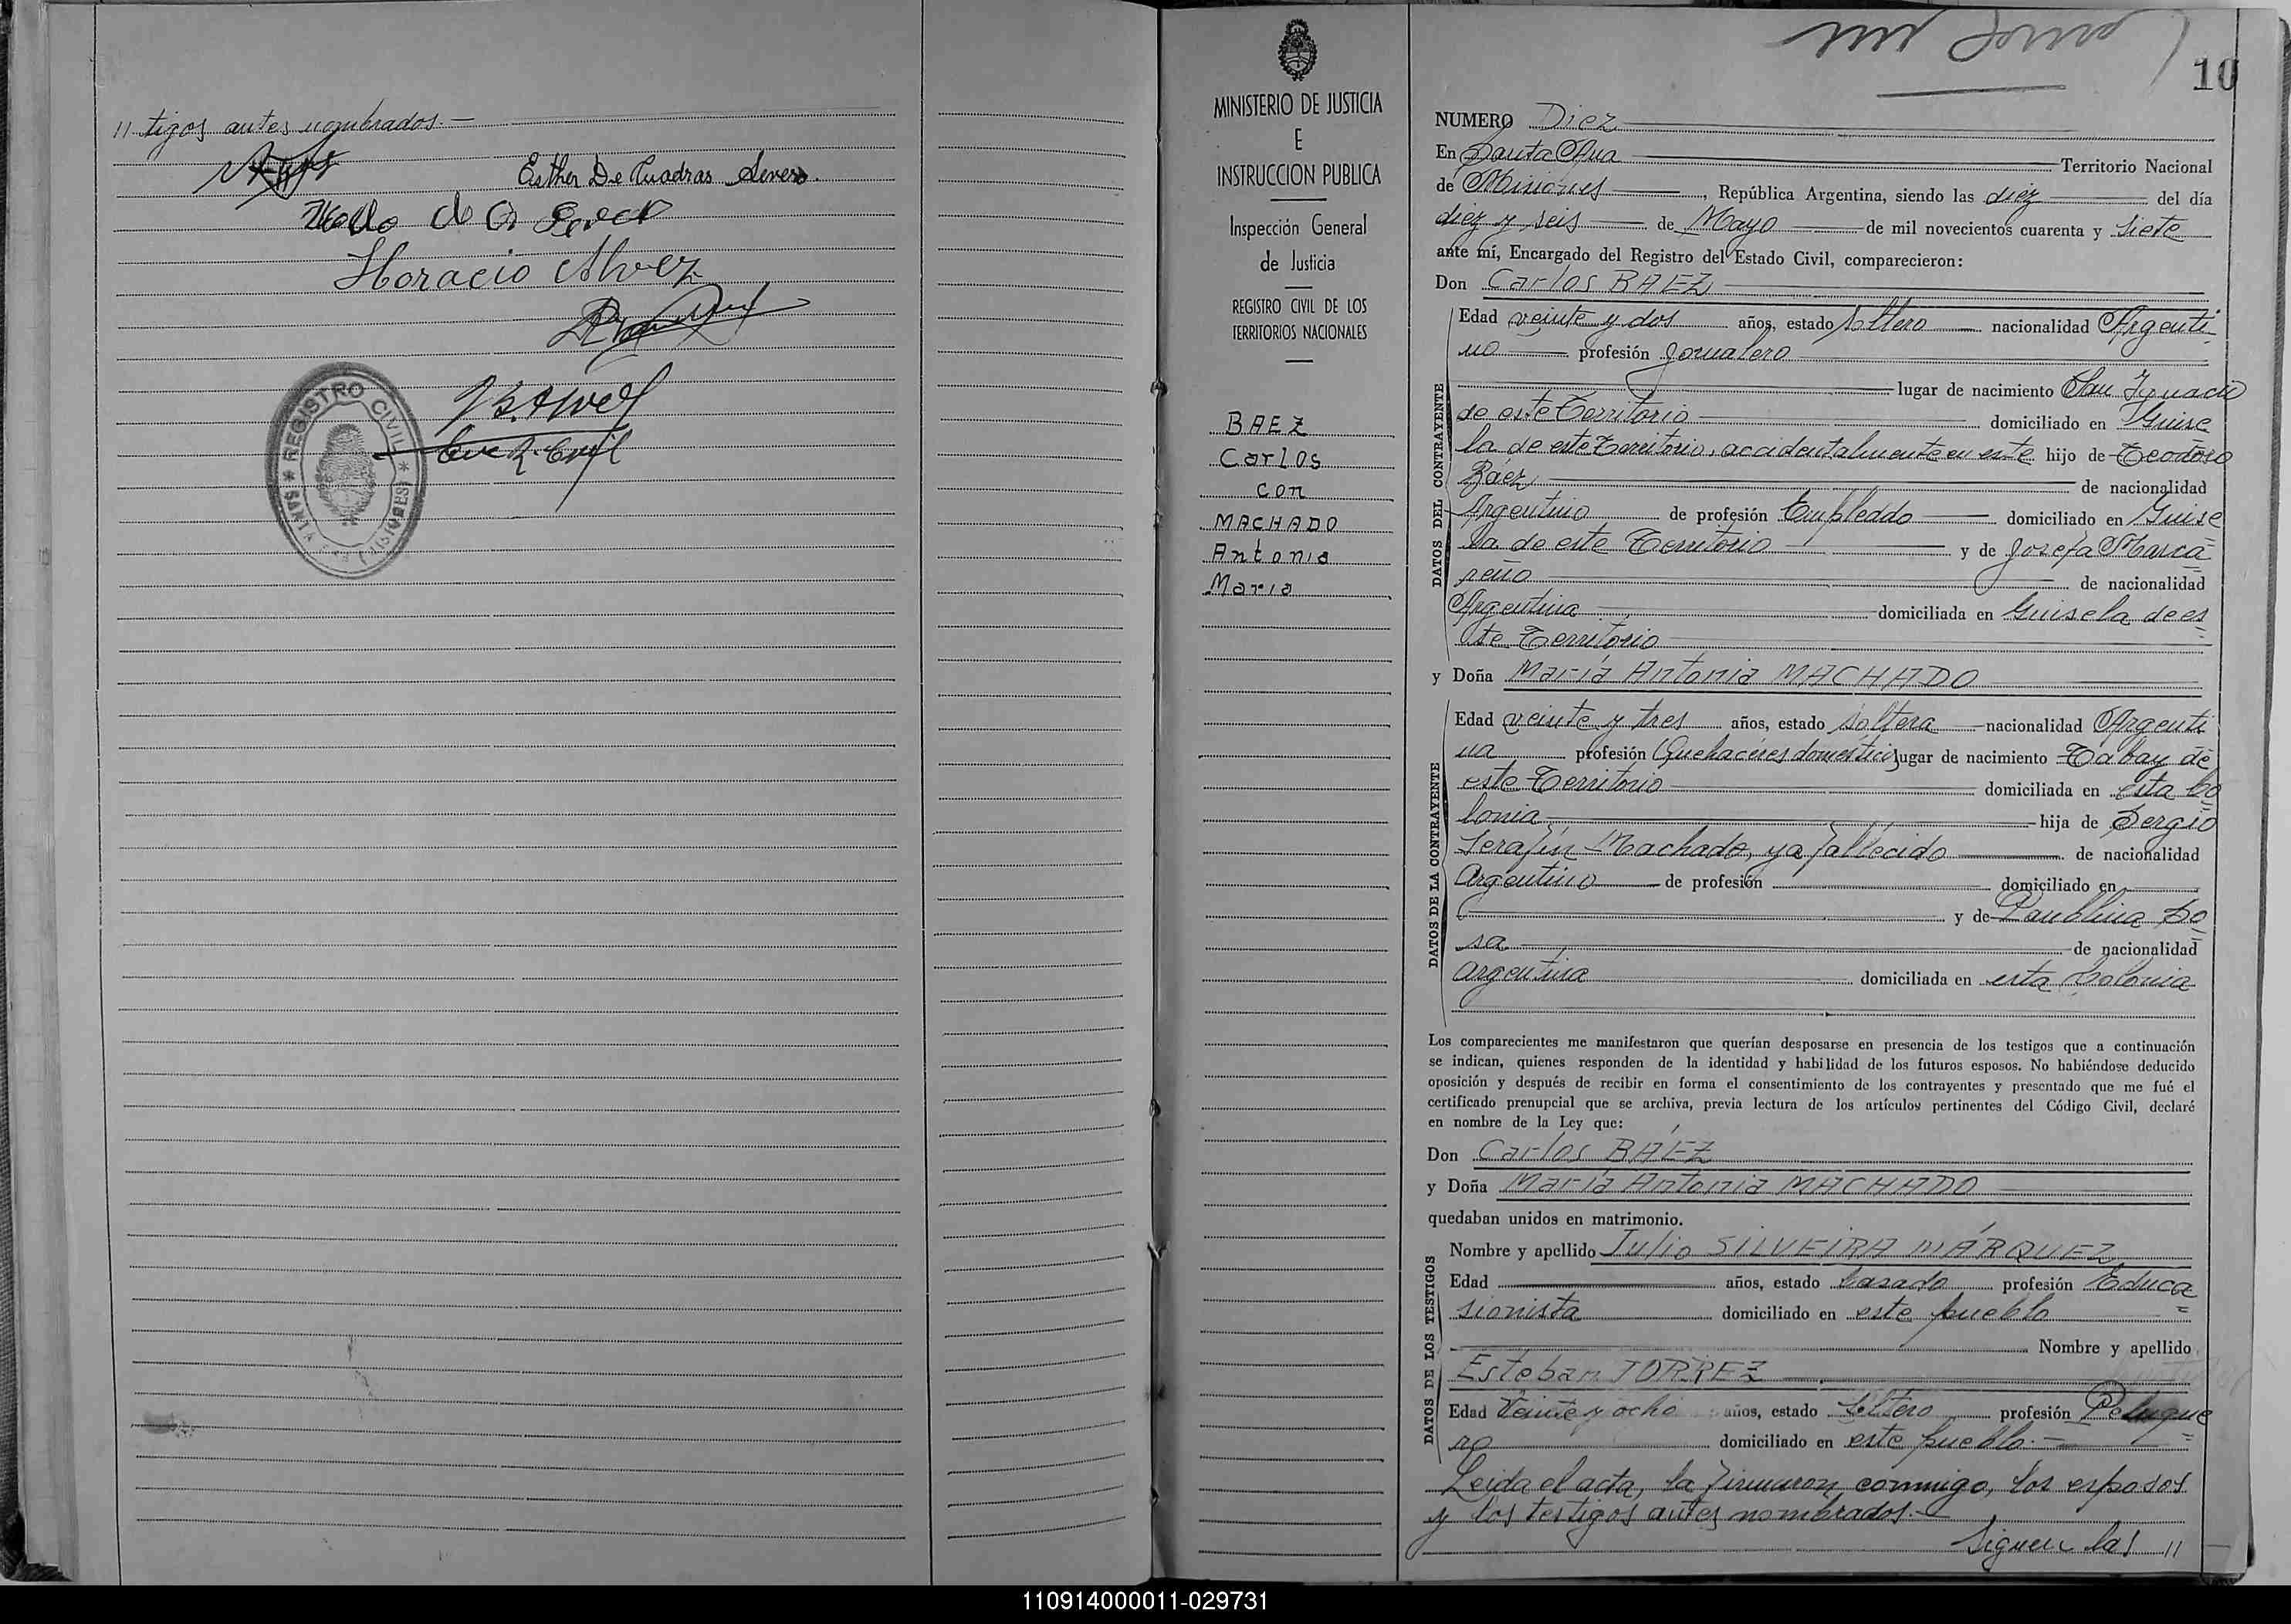 // tigos antes nombrados.—
Esther De Cuadras Severo.
Horacio Alvez
REGISTRO CIVIL
SANTA ANA (MISIONES)
MINISTERIO DE JUSTICIA
E
INSTRUCCION PUBLICA
Inspección General
de Justicia
REGISTRO CIVIL DE LOS
TERRITORIOS NACIONALES
BAEZ
Carlos
con
MACHADO
Antonia
Maria
10
NUMERO Diez
En Santa Ana Territorio Nacional
de Misiones, República Argentina, siendo las diez del día
diez y seis de Mayo de mil novecientos cuarenta y siete
ante mí, Encargado del Registro del Estado Civil, comparecieron:
Don Carlos BAEZ
DATOS DEL CONTRAYENTE
Edad veinte y dos años, estado soltero nacionalidad Argenti
no profesión Jornalero
lugar de nacimiento San Ignacio
de este Territorio domiciliado en Guise
la de este Territorio, accidentalmente en este hijo de Teodoro
Báez de nacionalidad
Argentino de profesión Empleado domiciliado en Guise
la de este Territorio y de Josefa Marca
reño de nacionalidad
Argentina domiciliada en Guisela de es
te Territorio
y Doña María Antonia MACHADO
DATOS DE LA CONTRAYENTE
Edad veinte y tres años, estado soltera nacionalidad Argenti
na profesión Quehaceres domésticos lugar de nacimiento Tabay de
este Territorio domiciliada en esta Co
lonia hija de Sergio
Serafín Machado, ya fallecido de nacionalidad
Argentino de profesión domiciliado en
y de Paublina So
sa de nacionalidad
argentina domiciliada en esta Colonia
Los comparecientes me manifestaron que querían desposarse en presencia de los testigos que a continuación
se indican, quienes responden de la identidad y habilidad de los futuros esposos. No habiéndose deducido
oposición y después de recibir en forma el consentimiento de los contrayentes y presentado que me fué el
certificado prenupcial que se archiva, previa lectura de los artículos pertinentes del Código Civil, declaré
en nombre de la Ley que:
Don Carlos BÁEZ
y Doña María Antonia MACHADO
quedaban unidos en matrimonio.
DATOS DE LOS TESTIGOS
Nombre y apellido Julio SILVEIRA MÁRQUEZ
Edad años, estado Casado profesión Educa
sionista domiciliado en este pueblo
Nombre y apellido
Esteban TORREZ
Edad Veinte y ocho años, estado soltero profesión Peluque
ro domiciliado en este pueblo.—
Leida el acta, la firmaron conmigo, los esposos
y los testigos antes nombrados.—
Siguen las //
110914000011-029731